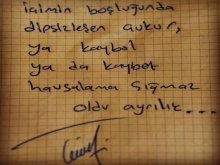 içimin boşluğunda
dipsizleşen çukur,
ya kaybol
ya da kaybet
havsalama sığmaz
oldu ayrılık...